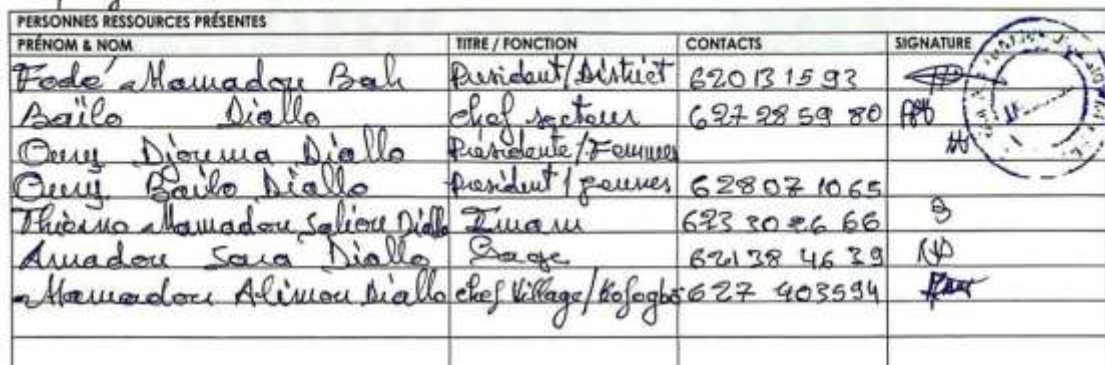 PERSONNES RESSOURCES PRÉSENTES
PRÉNOM & NOM TITRE / FONCTION CONTACTS SIGNATURE
Fodé Mamadou Bah President/District 620 13 15 93
Baïlo Diallo chef secteur 627 28 59 80
Oury Djouma Diallo Présidente/Femmes
Oury Bailo Diallo President/jeunes 628 07 10 65
Thierno Mamadou Saliou Diallo Imam 623 30 26 66
Amadou Sara Diallo Sage 621 38 46 39
Mamadou Alimou Diallo chef Village/ 627 403594